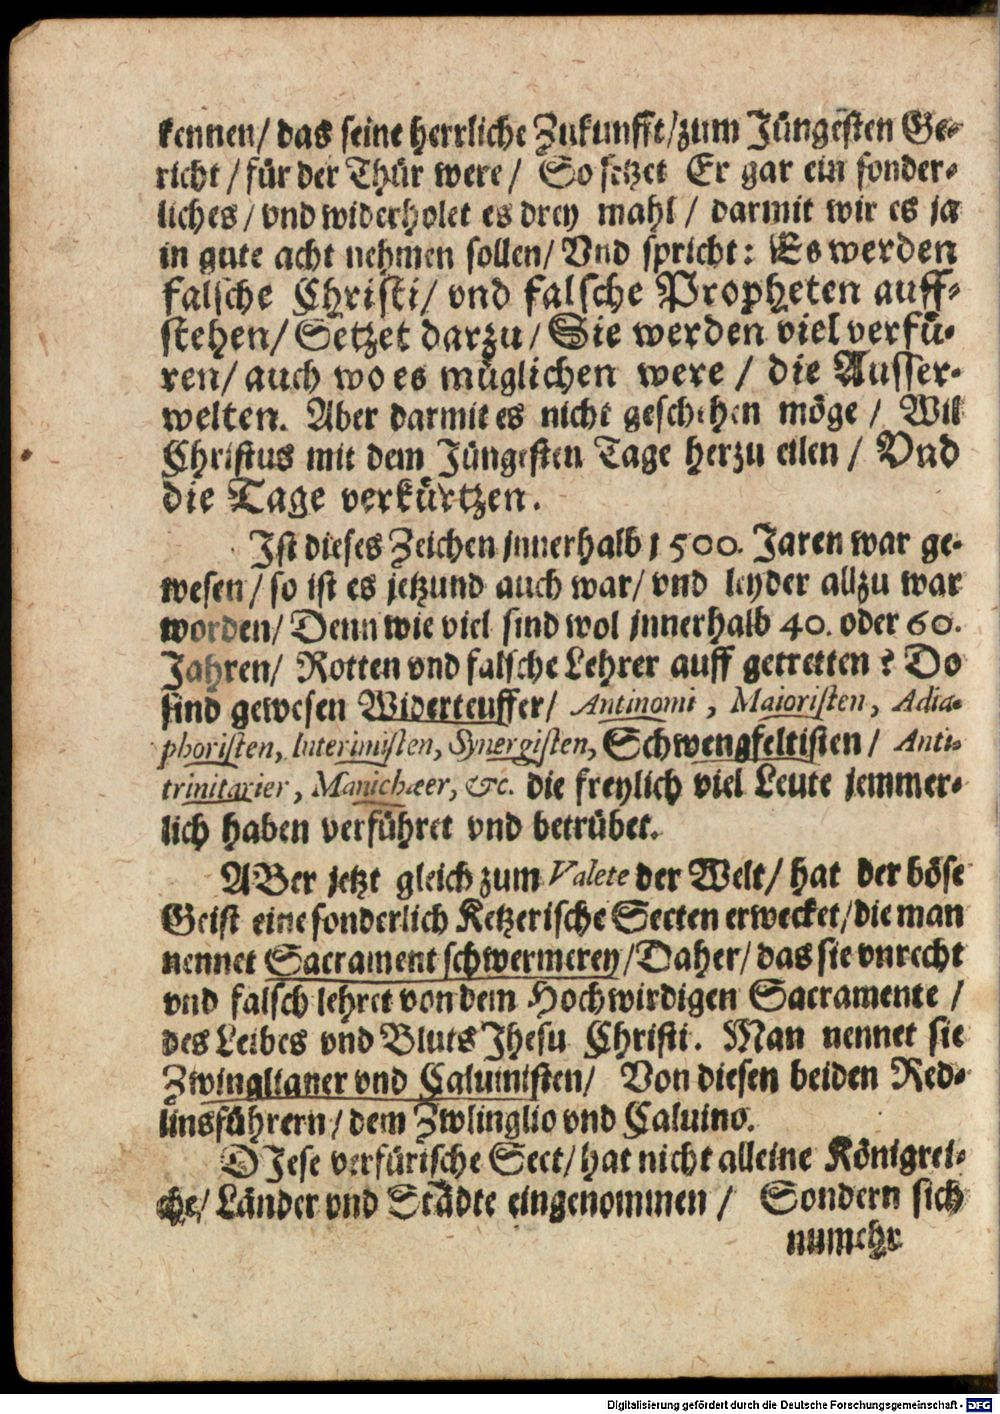 kennen/ das seine herrliche Zukunfft/zum Jüngesten Ge-
richt / für der Thür were / So setzet Er gar ein sonder-
liches / vnd widerholet es drey mahl / darmit wir es ja
in gute acht nehmen sollen/ Vnd spricht: Es werden
falsche Christi/ vnd falsche Propheten auff-
stehen/ Setzet darzu/ Sie werden viel verfü-
ren/ auch wo es müglichen were / die Ausser-
welten. Aber darmit es nicht geschehen möge / Wil
Christus mit dem Jüngesten Tage herzu eilen / Vnd
die Tage verkürtzen.
Ist dieses Zeichen jnnerhalb 1500. Jaren war ge-
wesen/ so ist es jetzund auch war/ vnd leyder allzu war
worden/ Denn wie viel sind wol jnnerhalb 40. oder 60.
Jahren/ Rotten vnd falsche Lehrer auff getretten? Do
sind gewesen Widerteuffer/ Antinomi, Maioristen, Adia-
phoristen, Interimisten, Synergisten, Schwengfeltisten / Anti-
trinitarier, Manichæer, &c. die freylich viel Leute jemmer-
lich haben verführet vnd betrübet.
ABer jetzt gleich zum Valete der Welt/ hat der böse
Geist eine sonderlich Ketzerische Secten erwecket/die man
nennet Sacrament schwermerey/Daher/ das sie vnrecht
vnd falsch lehret von dem Hochwirdigen Sacramente /
des Leibes vnd Bluts Jhesu Christi. Man nennet sie
Zwinglianer vnd Caluinisten/ Von diesen beiden Red-
linsführern/ dem Zwlinglio vnd Caluino.
DJese verfürische Sect/ hat nicht alleine Königrei-
che/ Länder vnd Städte eingenommen / Sondern sich
numehr
Digitalisierung gefördert durch die Deutsche Forschungsgemeinschaft - DFG